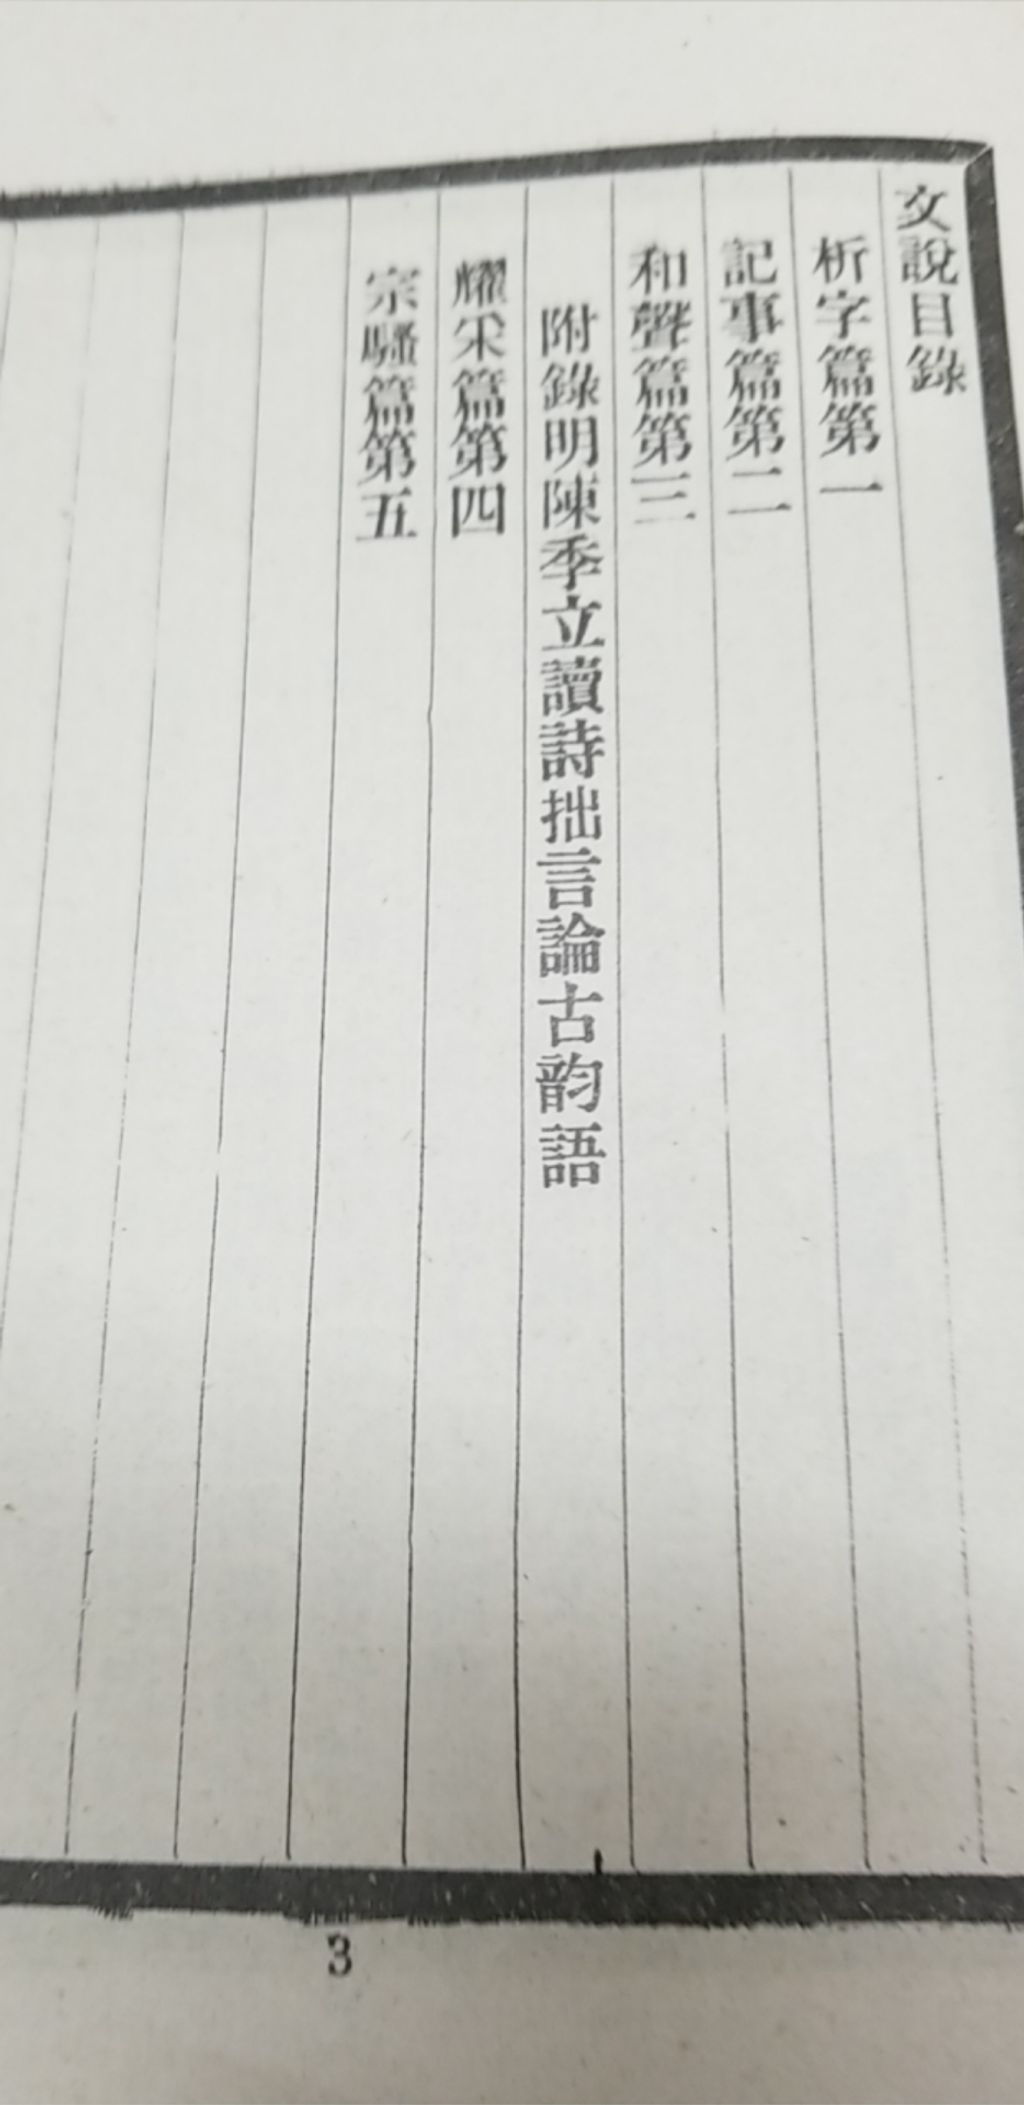 文說目錄
析字篇第一
記事篇第二
和聲篇第三
附錄明陳季立讀詩拙言論古韵語
耀采篇第四
宗騷篇第五
3